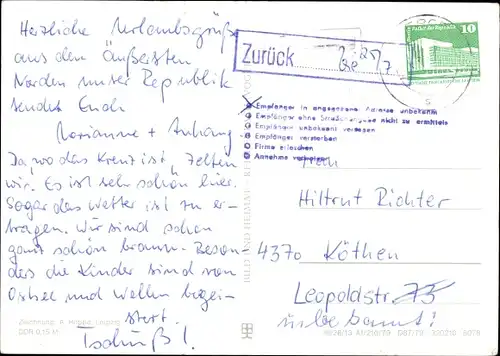 Herzliche Urlaubsgrüße
aus dem Äußersten
Norden unser Republik
sendet Euch
Marianne + Anhang
Da, wo das Kreuz ist, zelten
wir. Es ist sehr schön hier.
Sogar das Wetter ist zu er-
tragen. Wir sind schon
ganz schön braun. Beson-
ders die Kinder sind von
Ostsee und Wellen begei-
stert.
Tschüß!
Zurück
10
Empfänger in angegebener Adresse unbekannt
Empfänger ohne Straßenangabe nicht zu ermitteln
Empfänger unbekannt verzogen
Empfänger verstorben
Firma erloschen
Annahme verweigert
Hiltrut Richter
4370 Köthen
Leopoldstr. 75
unbekannt!
BILD UND HEIMAT
DDR 0,15 M